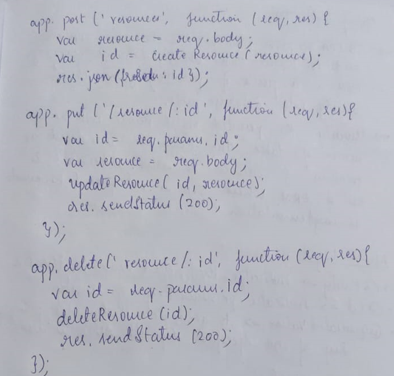 app. post (' resource', function (req, res) {
var resource = req. body;
var id = Create Resource (resource);
res. json ( : id });
app. put ('/resource/: id', function (req, res){
var id = req. params. id;
var resource = req. body;
update Resource( id, resource);
res. send Status (200);
});
app, delete (' resource/: id', function (req, res){
var id = req. params. id;
delete Resource (id);
res. send Status (200);
});